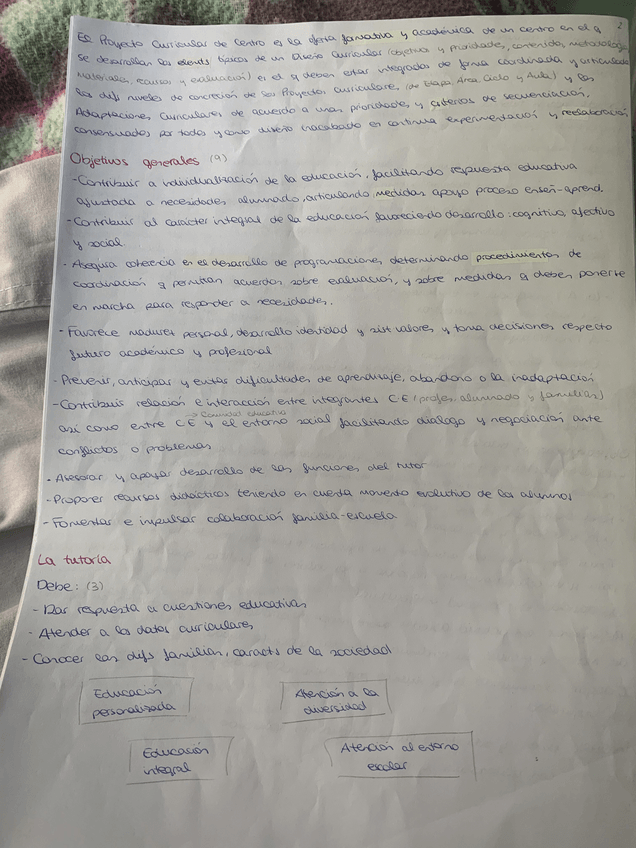 2
El Proyecto Curricular de Centro es la oferta formativa y académica de un centro en el q
se desarrollan los elemts típicos de un Diseño Curricular (objetivos y prioridades, contenidos, metodología
materiales, recursos y evaluación) en el q deben estar integrados de forma coordinada y articulada
los difs niveles de concreción de los Proyectos curriculares, (de Etapa, Área, Ciclo y Aula) y las
Adaptaciones Curriculares de acuerdo a unas prioridades y criterios de secuenciación,
consensuados por todos y como diseño inacabado en continua experimentación y reelaboración
Objetivos generales (9)
- Contribuir a individualización de la educación, facilitando respuesta educativa
ajustada a necesidades alumnado, articulando medidas apoyo proceso enseñ-aprend.
- Contribuir al carácter integral de la educación favoreciendo desarrollo: cognitivo, afectivo
y social.
- Asegura coherencia en el desarrollo de programaciones, determinando procedimientos de
coordinación q permitan acuerdos sobre evaluación, y sobre medidas q deben ponerse
en marcha para responder a necesidades.
- Favorece madurez personal, desarrollo identidad y sist valores y toma decisiones respecto
futuro académico y profesional
- Prevenir, anticipar y evitar dificultades de aprendizaje, abandono o la inadaptación
- Contribuir relación e interacción entre integrantes CE (profes, alumnado y familias)
→ Comunidad educativa
así como entre CE y el entorno social facilitando diálogo y negociación ante
conflictos o problemas
- Asesorar y apoyar desarrollo de las funciones del tutor
- Proponer recursos didácticos teniendo en cuenta momento evolutivo de los alumnos
- Fomentar e impulsar colaboración familia-escuela
La tutoría
Debe: (3)
- Dar respuesta a cuestiones educativas
- Atender a los datos curriculares
- Conocer las difs familias, caracts de la sociedad
Educación
personalizada
Atención a la
diversidad
Educación
integral
Atención al entorno
escolar